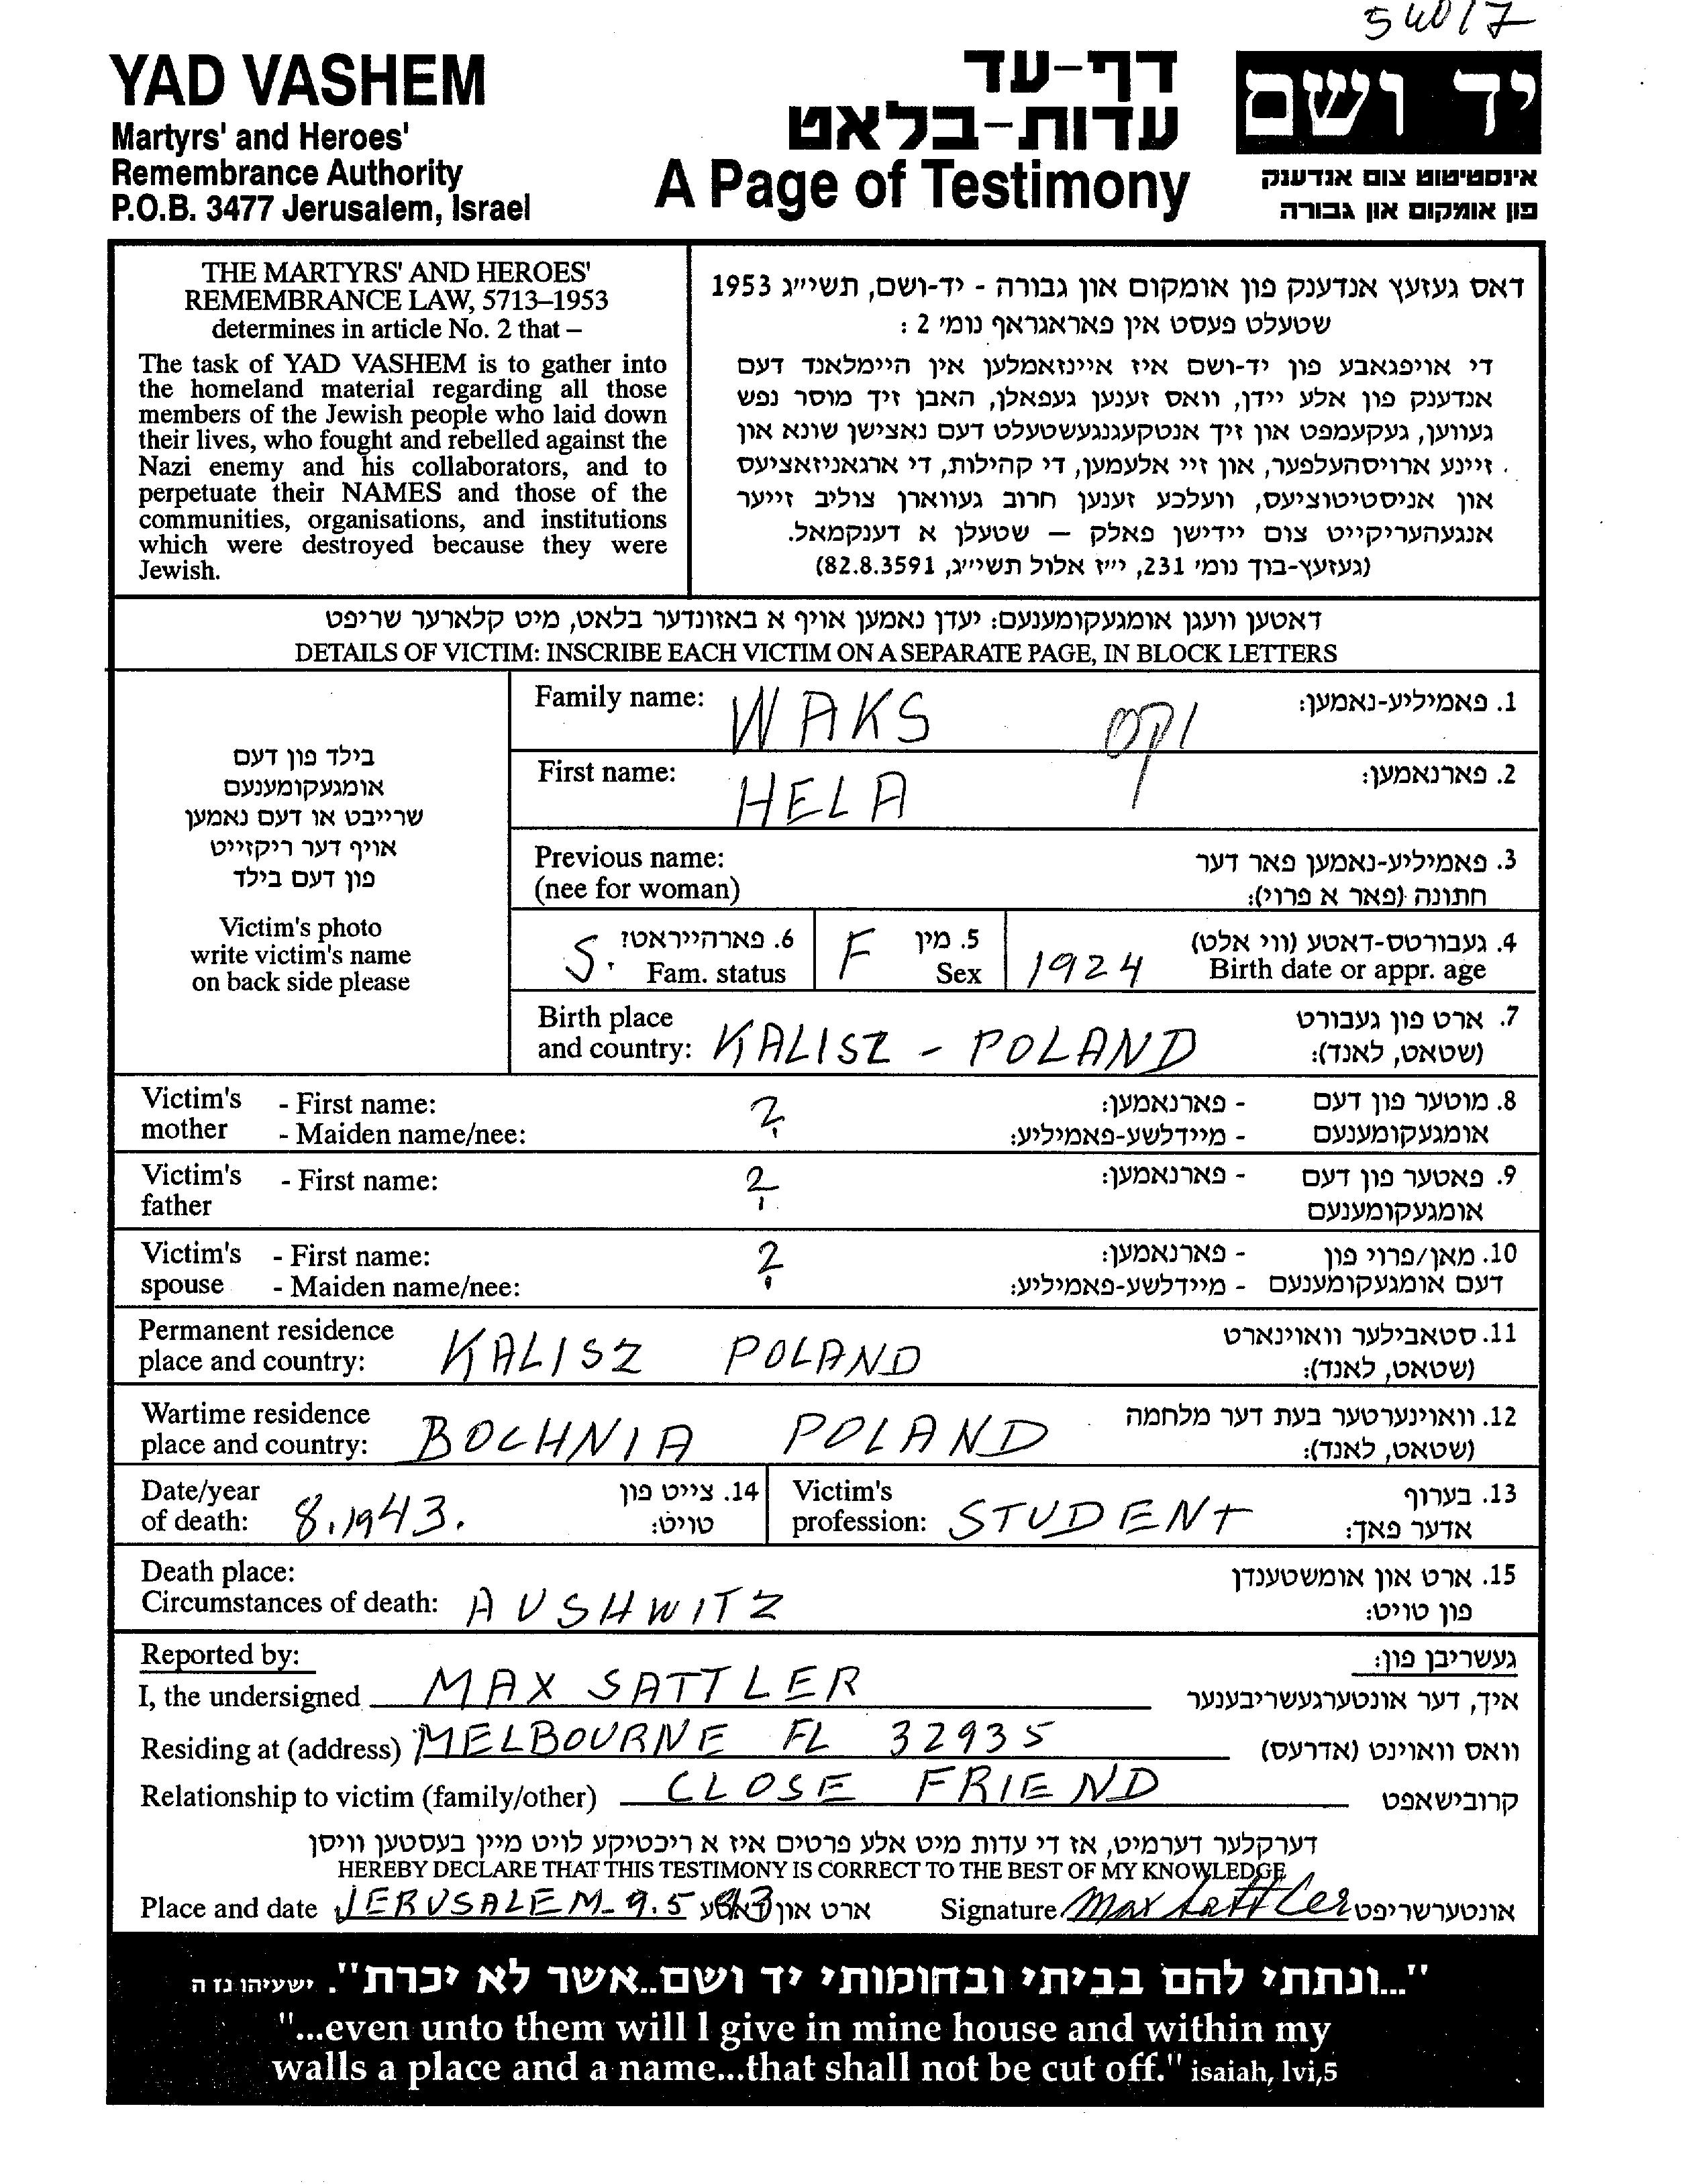 54017
YAD VASHEM
Martyrs' and Heroes'
Remembrance Authority
P.O.B. 3477 Jerusalem, Israel
דף-עד
עדות-בלאט
A Page of Testimony
יד ושם
אינסטיטוט צום אנדענק
פון אומקום און גבורה
THE MARTYRS' AND HEROES'
REMEMBRANCE LAW, 5713–1953
determines in article No. 2 that –
The task of YAD VASHEM is to gather into
the homeland material regarding all those
members of the Jewish people who laid down
their lives, who fought and rebelled against the
Nazi enemy and his collaborators, and to
perpetuate their NAMES and those of the
communities, organisations, and institutions
which were destroyed because they were
Jewish.
דאס געזעץ אנדענק פון אומקום און גבורה - יד-ושם, תשי״ג 1953
שטעלט פעסט אין פאראגראף נומ׳ 2 :
די אויפגאבע פון יד-ושם איז איינזאמלען אין היימלאנד דעם
אנדענק פון אלע יידן, וואס זענען געפאלן, האבן זיך מוסר נפש
געווען, געקעמפט און זיך אנטקעגנגעשטעלט דעם נאצישן שונא און
זיינע ארויסהעלפער, און זיי אלעמען, די קהילות, די ארגאניזאציעס
און אניסטיטוציעס, וועלכע זענען חרוב געווארן צוליב זייער
אנגעהעריקייט צום יידישן פאלק – שטעלן א דענקמאל.
(געזעץ-בוך נומ׳ 231, י״ז אלול תשי״ג, 82.8.3591)
דאטען וועגן אומגעקומענעם: יעדן נאמען אויף א באזונדער בלאט, מיט קלארער שריפט
DETAILS OF VICTIM: INSCRIBE EACH VICTIM ON A SEPARATE PAGE, IN BLOCK LETTERS
בילד פון דעם
אומגעקומענעם
שרייבט או דעם נאמען
אויף דער ריקזייט
פון דעם בילד
Victim's photo
write victim's name
on back side please
Family name: WAKS וקס 1. פאמיליע-נאמען:
First name: HELA 2. פארנאמען:
Previous name: 3. פאמיליע-נאמען פאר דער
(nee for woman) חתונה (פאר א פרוי):
S. 6. פארהייראטז F 5. מין 1924 4. געבורטס-דאטע (ווי אלט)
Fam. status Sex Birth date or appr. age
Birth place 7. ארט פון געבורט
and country: KALISZ - POLAND (שטאט, לאנד):
Victim's - First name: ? - פארנאמען: 8. מוטער פון דעם
mother - Maiden name/nee: - מיידלשע-פאמיליע: אומגעקומענעם
Victim's - First name: ? - פארנאמען: 9. פאטער פון דעם
father אומגעקומענעם
Victim's - First name: ? - פארנאמען: 10. מאן/פרוי פון
spouse - Maiden name/nee: - מיידלשע-פאמיליע: דעם אומגעקומענעם
Permanent residence 11. סטאבילער וואוינארט
place and country: KALISZ POLAND (שטאט, לאנד):
Wartime residence 12. וואוינערטער בעת דער מלחמה
place and country: BOCHNIA POLAND (שטאט, לאנד):
Date/year 14. צייט פון Victim's 13. בערוף
of death: 8.1943. טויט: profession: STUDENT אדער פאך:
Death place: 15. ארט און אומשטענדן
Circumstances of death: AUSHWITZ פון טויט:
Reported by: געשריבן פון:
I, the undersigned MAX SATTLER איך, דער אונטערגעשריבענער
Residing at (address) MELBOURNE FL 32935 וואס וואוינט (אדרעס)
Relationship to victim (family/other) CLOSE FRIEND קרובישאפט
דערקלער דערמיט, אז די עדות מיט אלע פרטים איז א ריכטיקע לויט מיין בעסטען וויסן
HEREBY DECLARE THAT THIS TESTIMONY IS CORRECT TO THE BEST OF MY KNOWLEDGE
Place and date JERUSALEM-9.5 93 ארט און דאטע Signature Max Sattler אונטערשריפט
"...ונתתי להם בביתי ובחומותי יד ושם..אשר לא יכרת". ישעיהו נז ה
"...even unto them will I give in mine house and within my
walls a place and a name...that shall not be cut off." isaiah, lvi,5